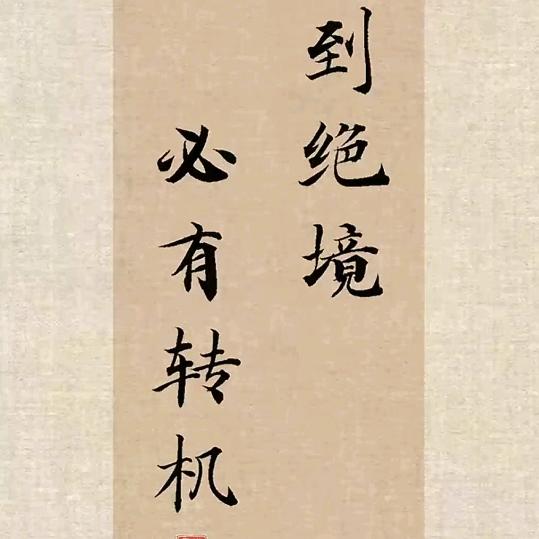 到绝境
必有转机